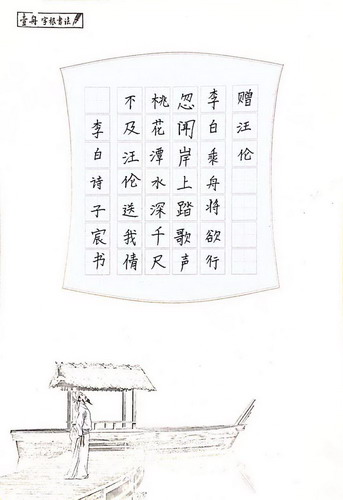 壹舟字根书法
赠汪伦
李白乘舟将欲行
忽闻岸上踏歌声
桃花潭水深千尺
不及汪伦送我情
李白诗子宸书